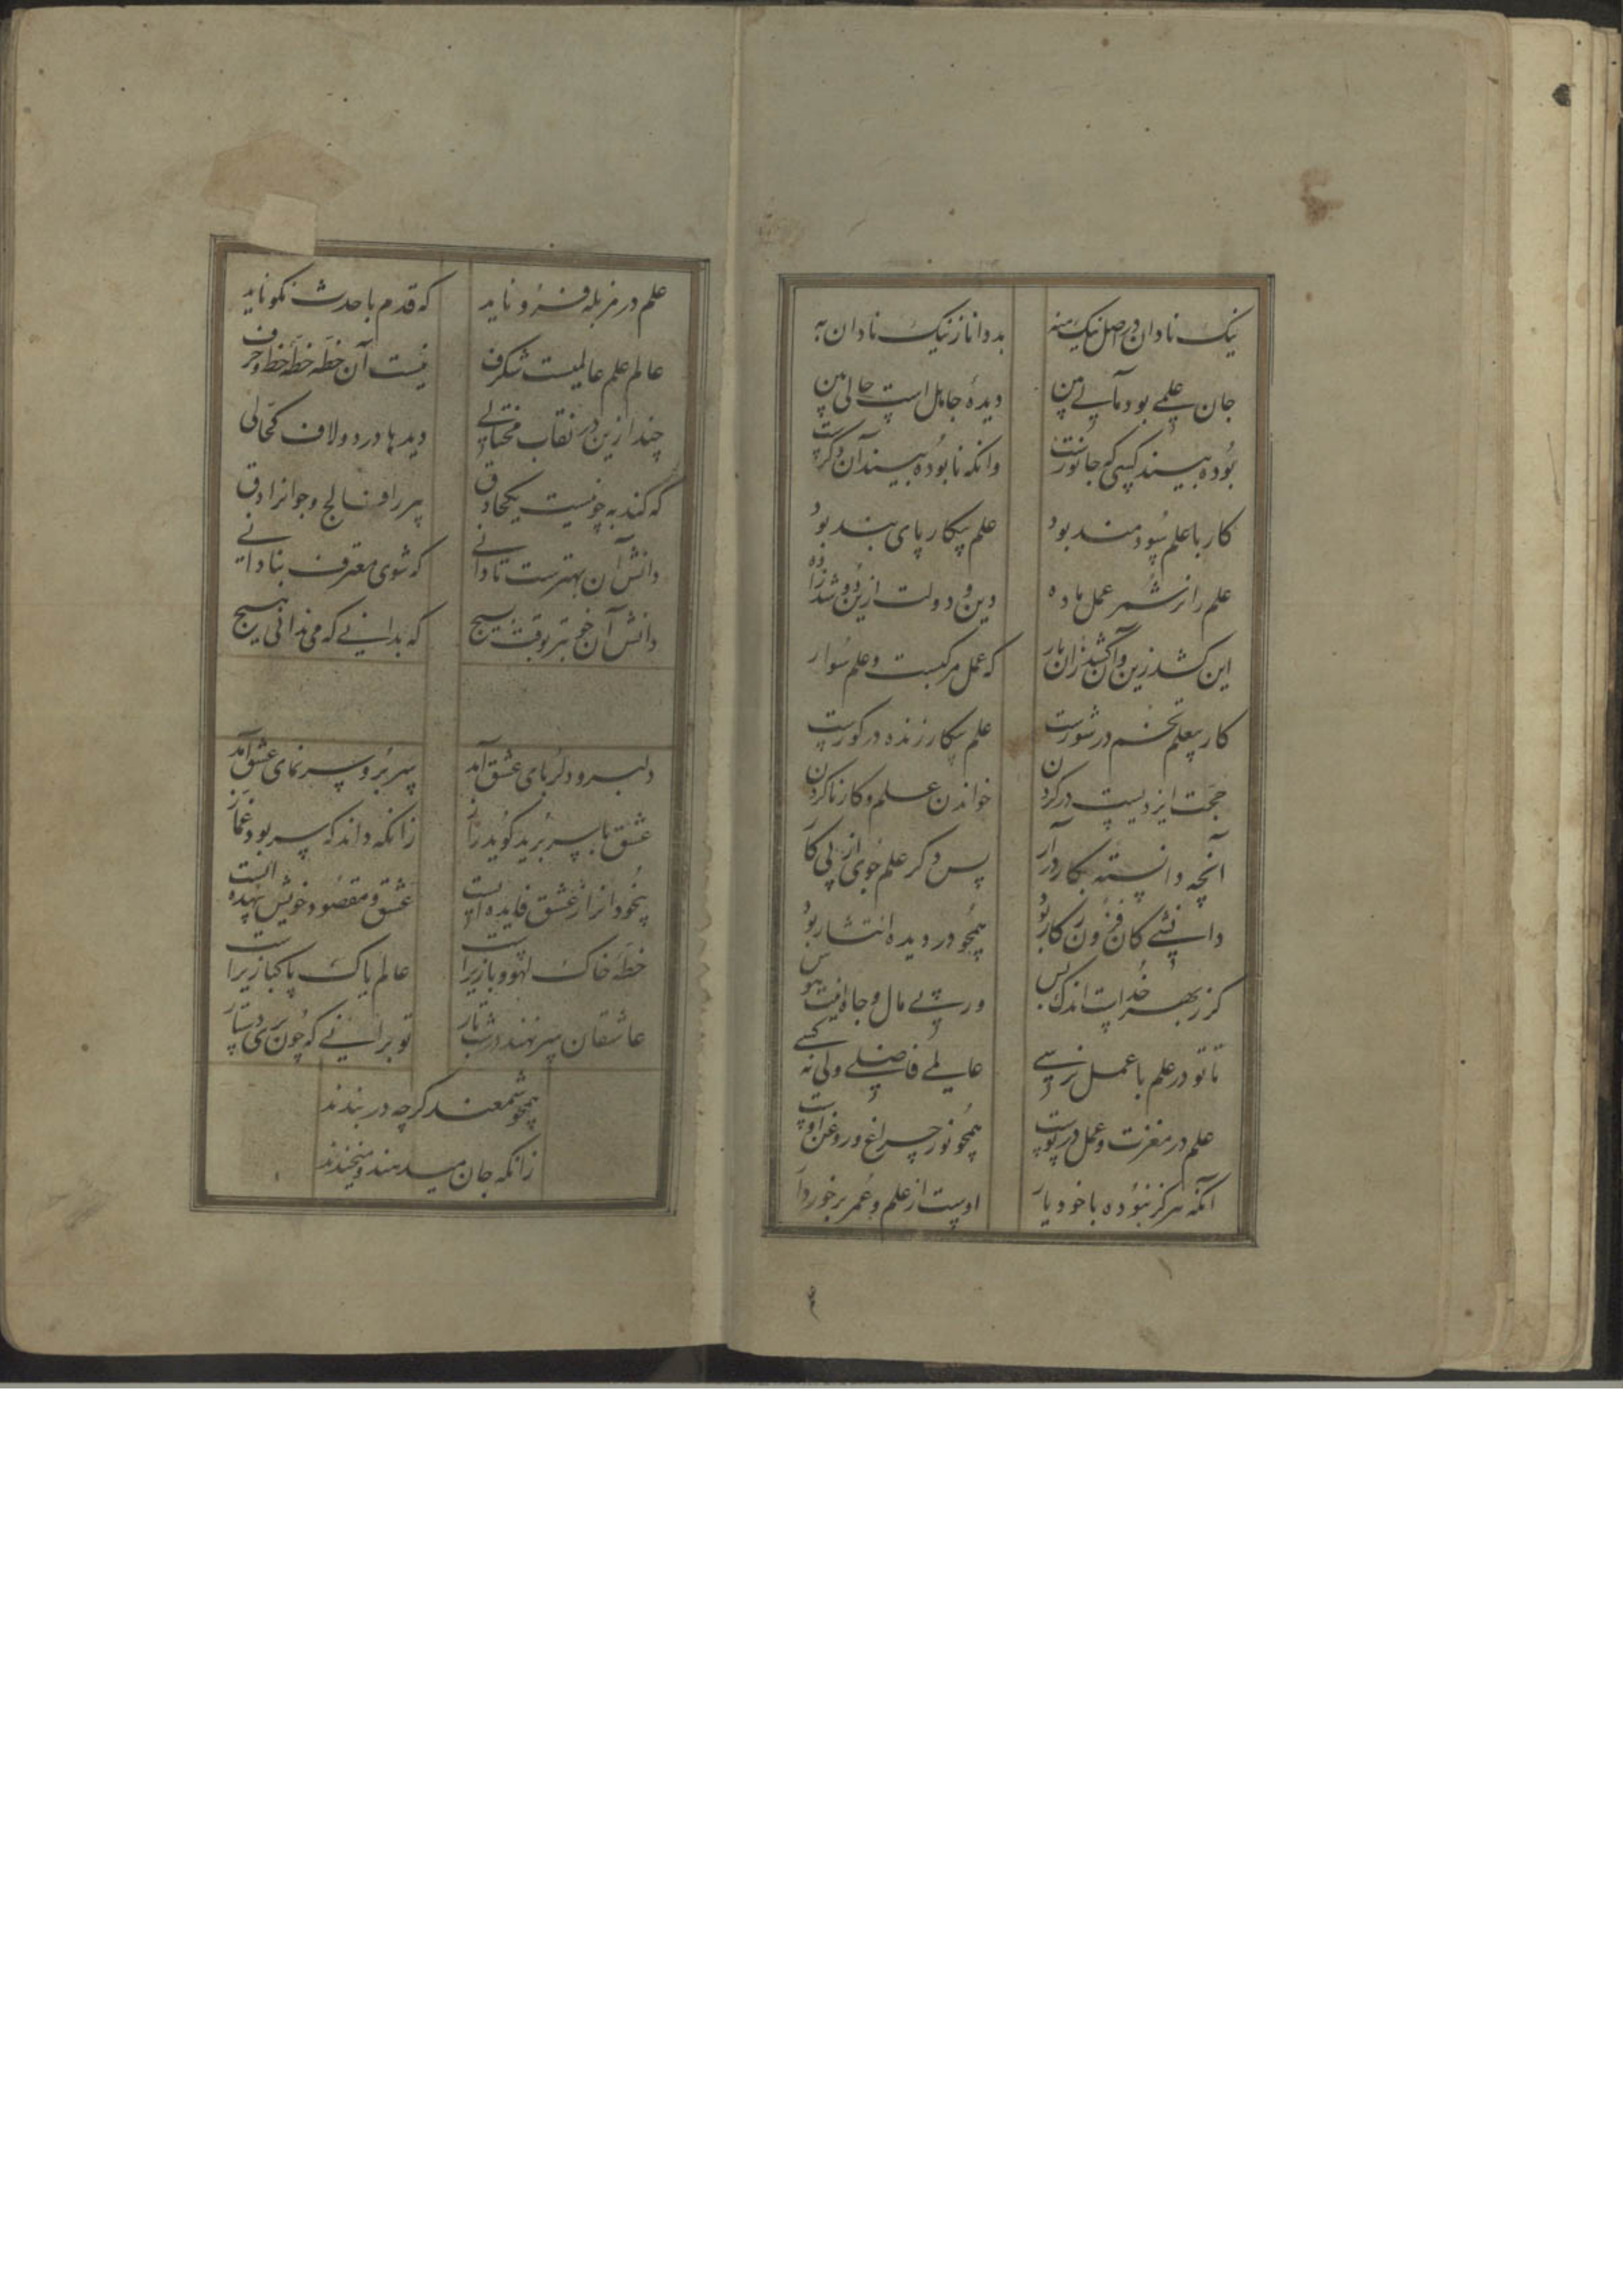 نیک نادان در اصل نیک نه به
بد دانا ز نیک نادان به
جان بی علم بود مآبی بین
دیدهٔ جاهل است جالی بین
بوده بیند کسی که جانورست
وانکه نابوده بیند آن دگرست
کار با علم سودمند بود
علم بیکار پای بند بود
علم را نر شمر عمل ماده
دین و دولت ازین دو شد زاده
این کشد زین و آن کشد زان بار
که عمل مرکبست و علم سوار
کار بیعلم تخم در شورست
علم بیکار زنده در کورست
حجت ایزدیست در کردن
خواندن علم و کار ناکردن
آنچه دانسته بکار درآر
پس دگر علم جوی از پی کار
دانشی کان فزون ز کار بود
همچو در دیده انتشار بود
کز بهر خداست اندک بس
ور پی مال و جاه هوس
تا تو در علم با عمل نرسی
عالمی فاضلی ولی نه کسی
علم در مغزت و عمل در پوست
همچو نور چراغ و روغن اوست
آنکه هرگز نبوده با خود یار
اوست از علم و عمر برخوردار
علم در مزبله فرو ناید
که قدم با حدث نکو ناید
عالم علم عالمیست شگرف
نیست آن خطه خطهٔ خط و حرف
چند ازین در نقاب محتالی
دیدها درد و لاف کحالی
که کند به چو نیست یکحاذق
پیر را فالج و جوانرا دق
دانش آن بهترست تا دانی
که شوی معترف بنادانی
دانش آن خوبتر بوقت بسیج
که بدانی که می ندانی هیچ
دلبر و دلربای عشق آمد
سر بر و سر نمای عشق آمد
عشق با سر بریده گوید راز
زانکه داند که سر بود غماز
بخود از عشق فایده است
عشق و مقصود خویش بیهده است
خطهٔ خاک لهو و بازیراست
عالم پاک پاکبازیراست
عاشقان سر نهند در شب تار
تو برانی که چون بری دستار
همچو شمعند گرچه در بندند
زانکه جان میدهند و میخندند